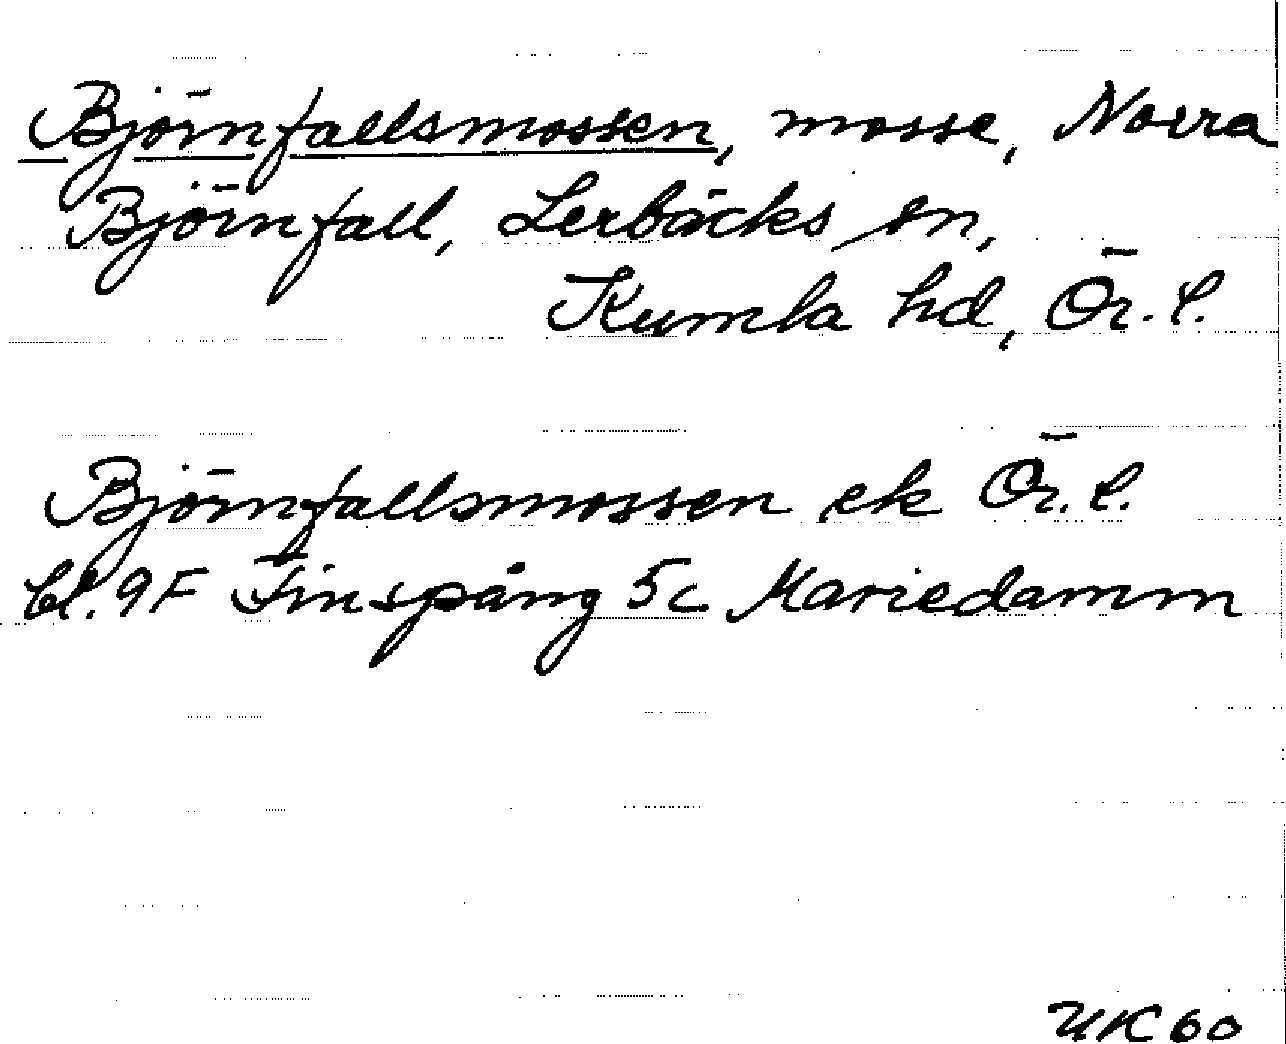 Björnfallsmossen, mosse, Norra
Björnfall, Lerbäcks sn,
Kumla hd, Ör. l.
Björnfallsmossen ek Ör. l.
bl. 9F Finspång 5c Mariedamm
UK 60